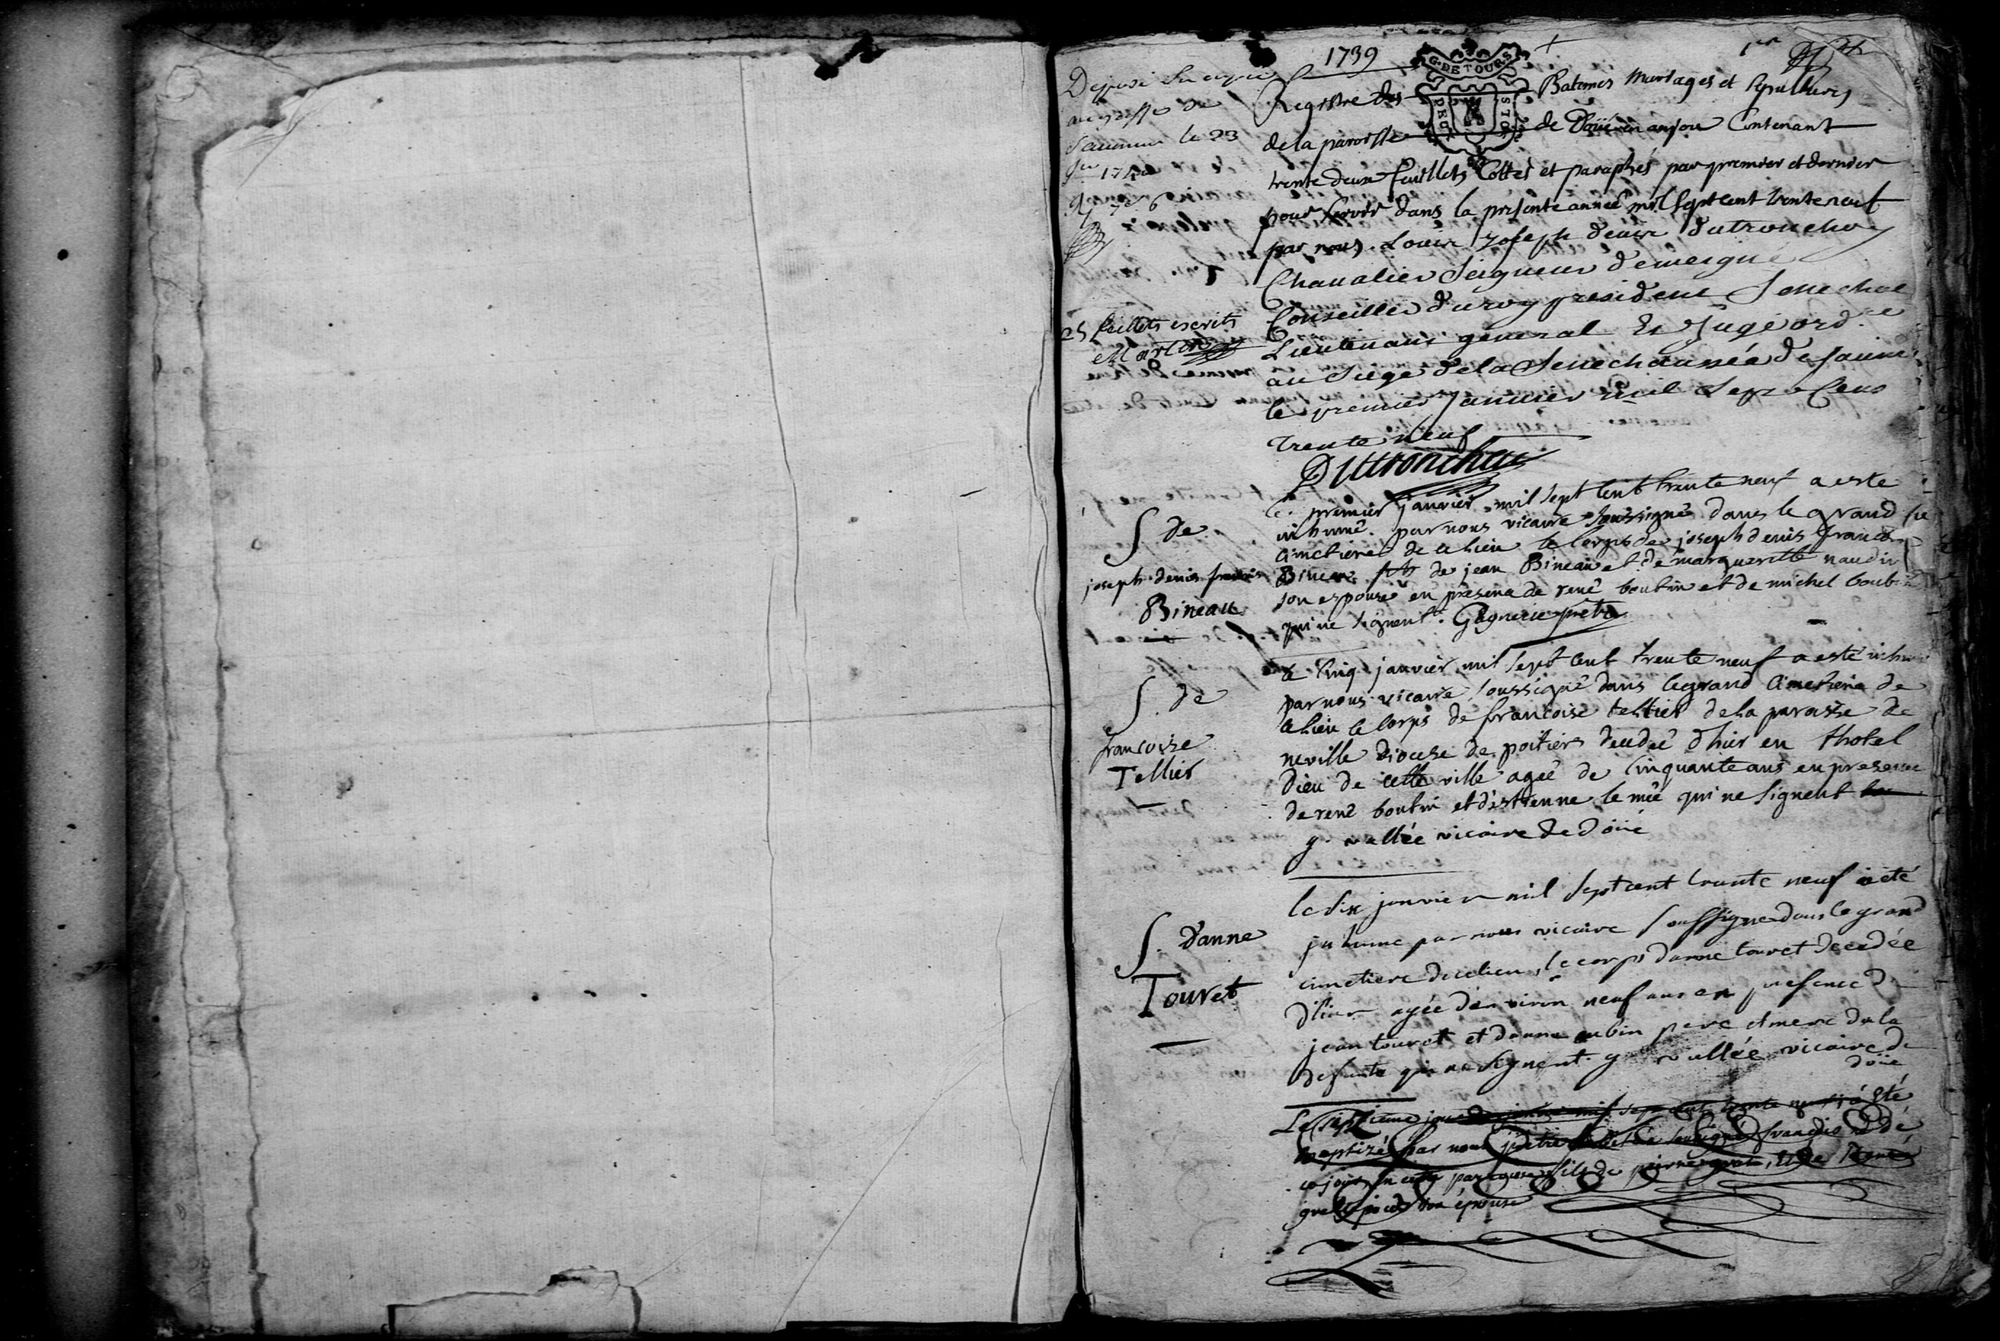 1739
G. DE TOURS
Deposé
au greffe de
Saumur le 23
1740
Registre des Batemes Mariages et Sepultures
de la paroisse de Doüé en anjou Contenant
trente deux feuillets Cottés et paraphés par premier et dernier
pour servir dans la presente année mil sept cent trente neuf
par nous Louis Joseph Dutronchay
Chevalier Seigneur
Conseiller du roy president Senechal
Lieutenant general et Juge ord.re
au Siege de la Senechaussée de Saumur
le premier Janvier mil Sept Cens
trente neuf
Dutronchay
25 feuillets escrits
Martin
S de
joseph denis francois
Bineau
le premier janvier mil sept cent trente neuf a esté
inhumé par nous vicaire soussigné dans le grand
cimetiere de ce lieu le corps de joseph denis francois
Bineau fils de jean Bineau et de marguerite naudin
son espouse en presence de rené boutin et de michel boutin
qui ne signent. Gagnerie pretre
S. de
francoise
Tellier
le cinq janvier mil sept cent trente neuf a esté inhumé
par nous vicaire soussigné dans le grand cimetiere de
ce lieu le corps de francoise tellier de la paroisse de
neville diocese de poitiers decedeé d'hier en l'hotel
Dieu de cette ville ageé de cinquante ans en presence
de rené boutin et d'estienne le meé qui ne signent
g. valleé vicaire de doüé
S. d'anne
Touret
le six janvier mil sept cent trante neuf a eté
inhumé par nous vicaire soussigné dans le grand
cimetiere de ce lieu le corps d'anne touret decedée
d'hier agée d'environ neuf ans en presence de
jean touret et d'anne aubin pere et mere de la
defunte qui ne signent. g. vallée vicaire de
doüé
Le septieme jour de janvier mil sept cent trente neuf a été
baptizé par nous pretre soussigné françois né
ce jour en cette paroisse fils de pierre et de
son épouse